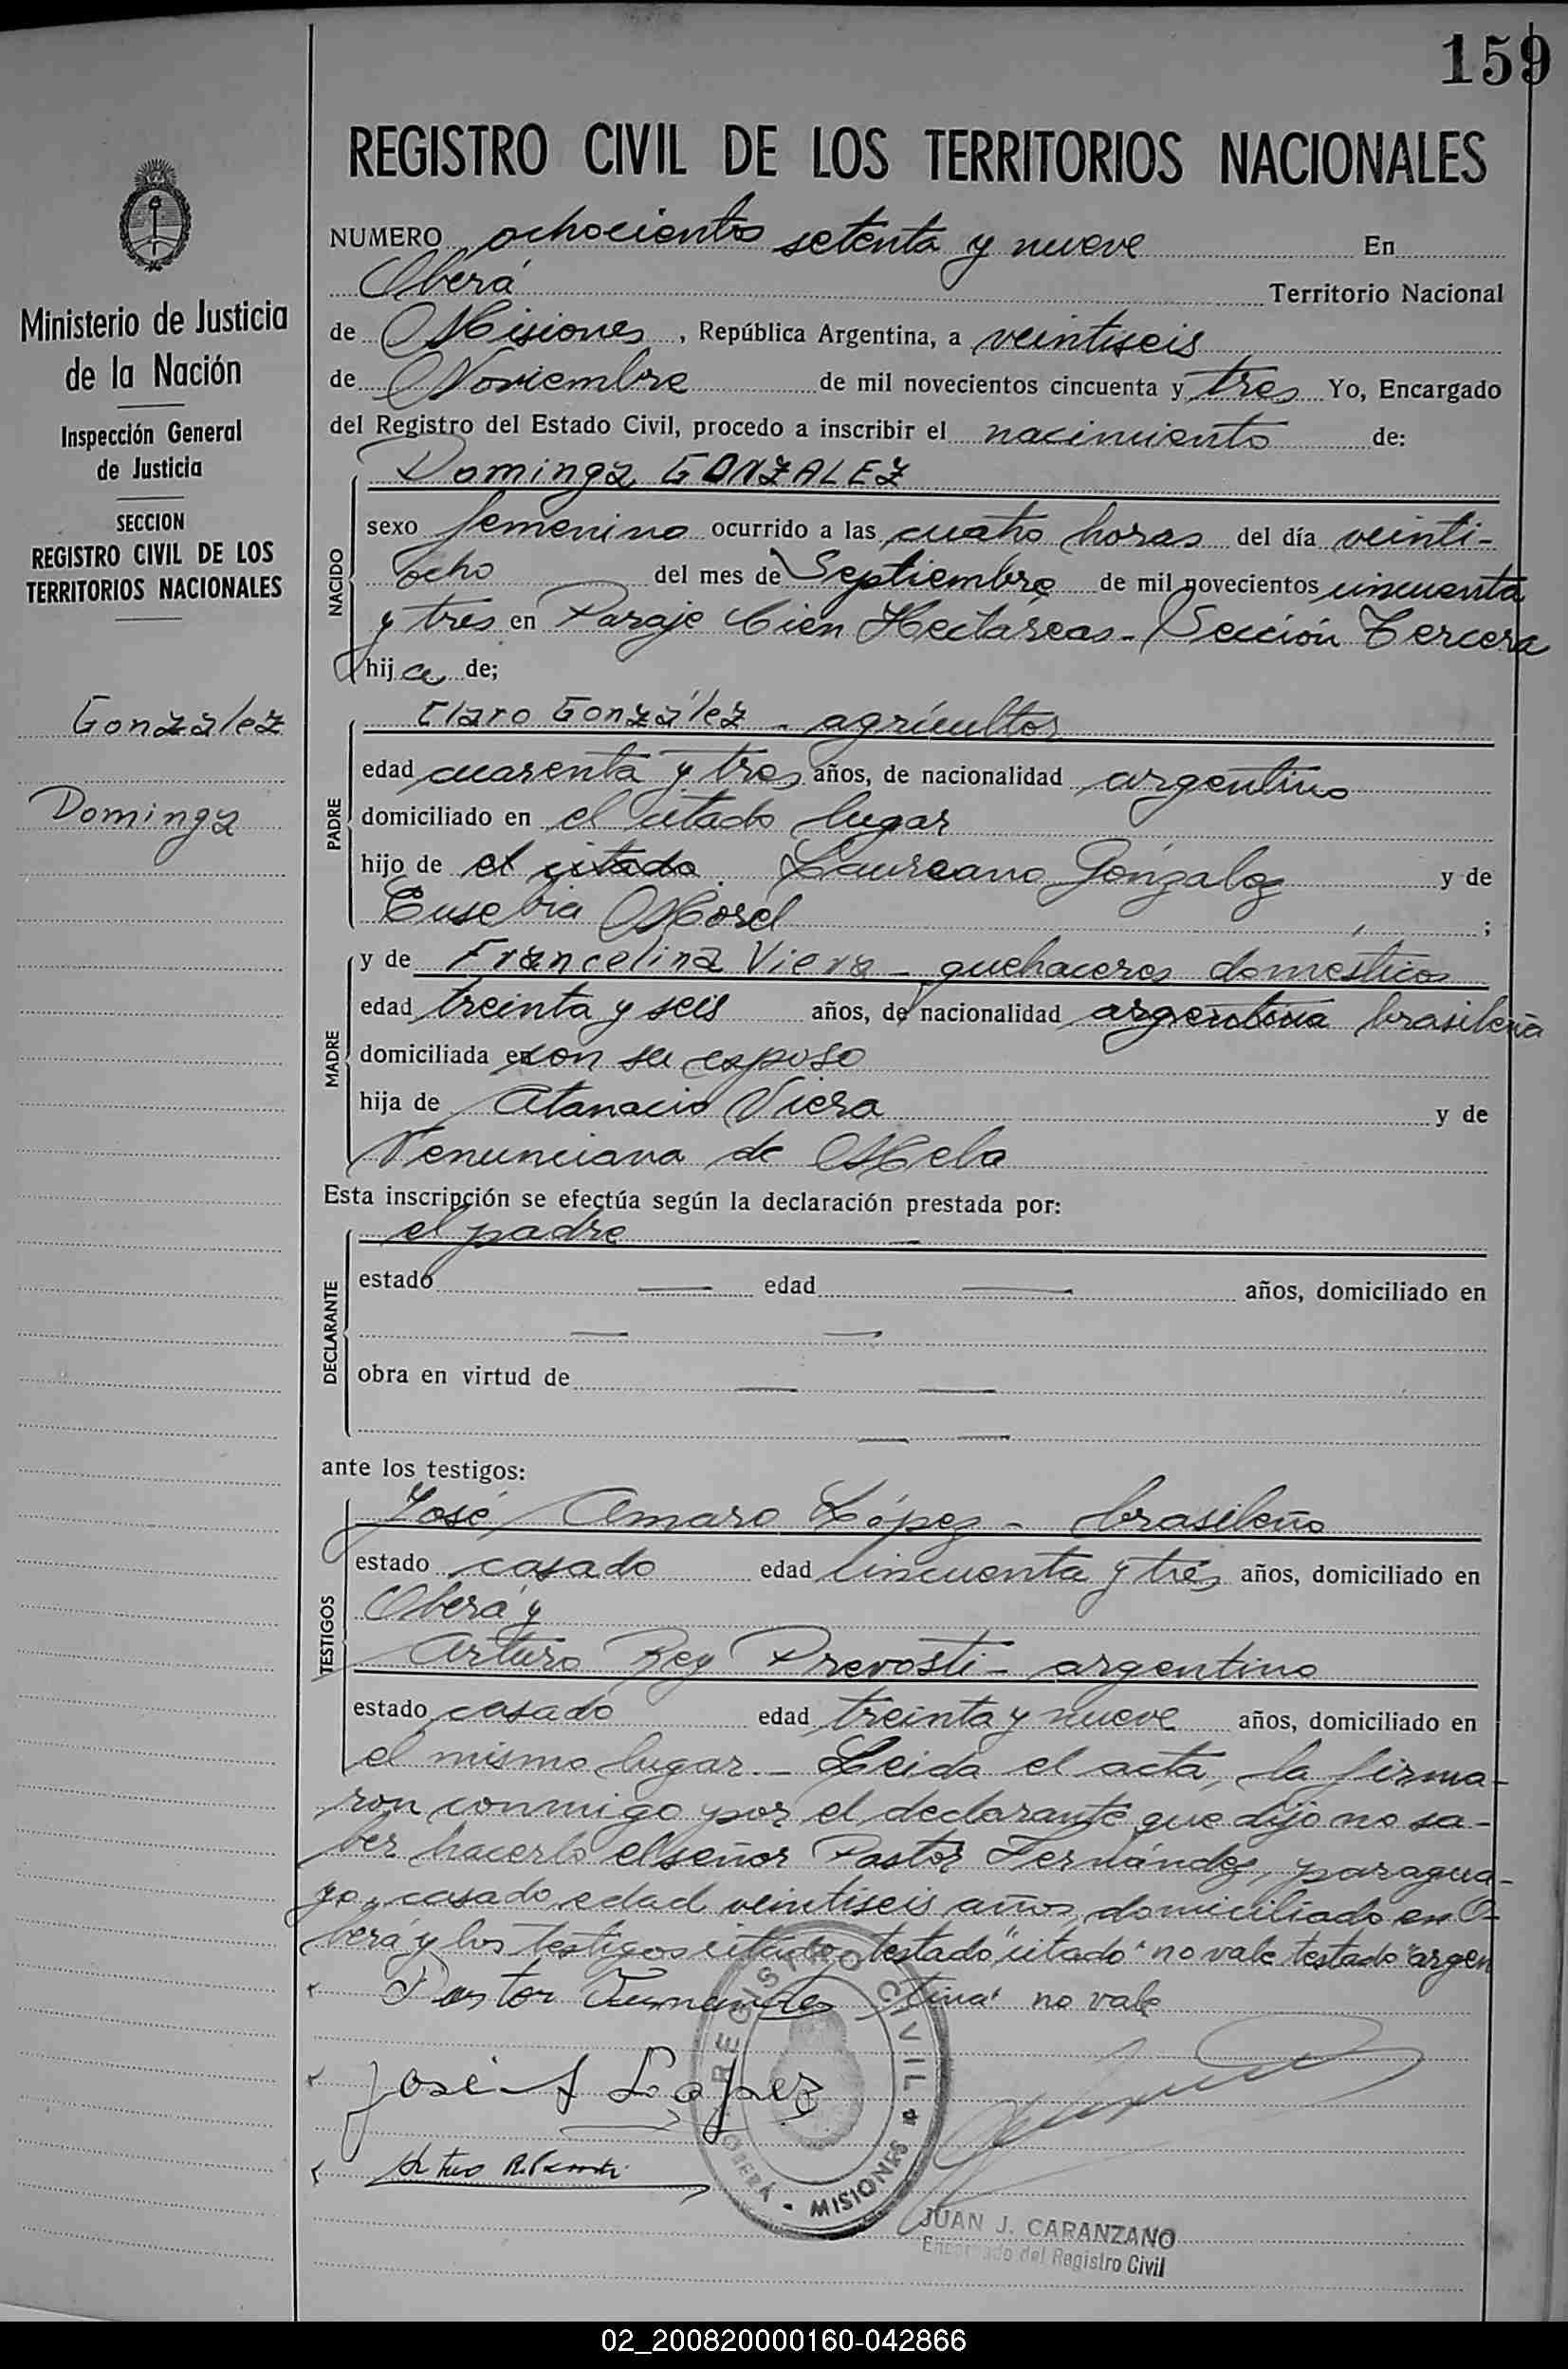 159
REGISTRO CIVIL DE LOS TERRITORIOS NACIONALES
Ministerio de Justicia
de la Nación
Inspección General
de Justicia
SECCION
REGISTRO CIVIL DE LOS
TERRITORIOS NACIONALES
Gonzalez
Dominga
NUMERO ochocientos setenta y nueve En
Oberá Territorio Nacional
de Misiones, República Argentina, a veintiseis
de Noviembre de mil novecientos cincuenta y tres Yo, Encargado
del Registro del Estado Civil, procedo a inscribir el nacimiento de:
NACIDO
Dominga GONZALEZ
sexo femenino ocurrido a las cuatro horas del día veinti-
ocho del mes de Septiembre de mil novecientos cincuenta
y tres en Paraje Cien Hectáreas - Sección Tercera
hija de;
PADRE
Claro González - agricultor
edad cuarenta y tres años, de nacionalidad argentino
domiciliado en el citado lugar
hijo de el citado Laureano Gonzalez y de
Eusebia Morel ;
MADRE
y de Francelina Viera - quehaceres domesticos
edad treinta y seis años, de nacionalidad argentina brasileña
domiciliada en con su esposo
hija de Atanacio Viera y de
Venunciana de Melo
Esta inscripción se efectúa según la declaración prestada por:
DECLARANTE
el padre —
estado — edad — años, domiciliado en
— —
obra en virtud de — —
— —
ante los testigos:
TESTIGOS
José Amaro López - brasileño
estado casado edad cincuenta y tres años, domiciliado en
Oberá y
Arturo Rey Prevosti - argentino
estado casado edad treinta y nueve años, domiciliado en
el mismo lugar.- Leida el acta, la firma-
ron conmigo por el declarante que dijo no sa-
ber hacerlo el señor Pastor Fernández, paragua-
yo, casado edad veintiseis años, domiciliado en O-
berá y los testigos citados, testado "citado" no vale testado "argen
tina" no vale
Pastor Fernandes
José A López
REGISTRO CIVIL
OBERÁ - MISIONES
JUAN J. CARANZANO
Encargado del Registro Civil
02_200820000160-042866